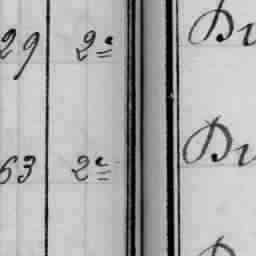 29 2e Du
63 2e Du